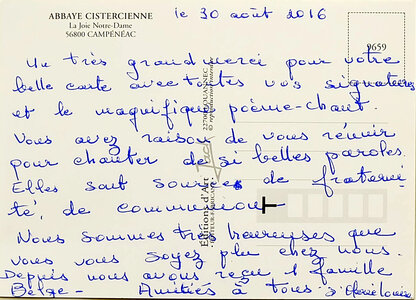 ABBAYE CISTERCIENNE
La Joie Notre-Dame
56800 CAMPÉNÉAC
le 30 août 2016
9659
Un très grand merci pour votre
belle carte avec toutes vos signatures
et le magnifique poème-chant.
Vous avez raison de vous réunir
pour chanter de si belles paroles.
Elles sont sources de fraterni
té, de communion
Nous sommes très heureuses que
vous vous soyez plu chez nous.
Depuis nous avons reçu 1 famille
Belge - Amitiés à tous
Editions d'Art